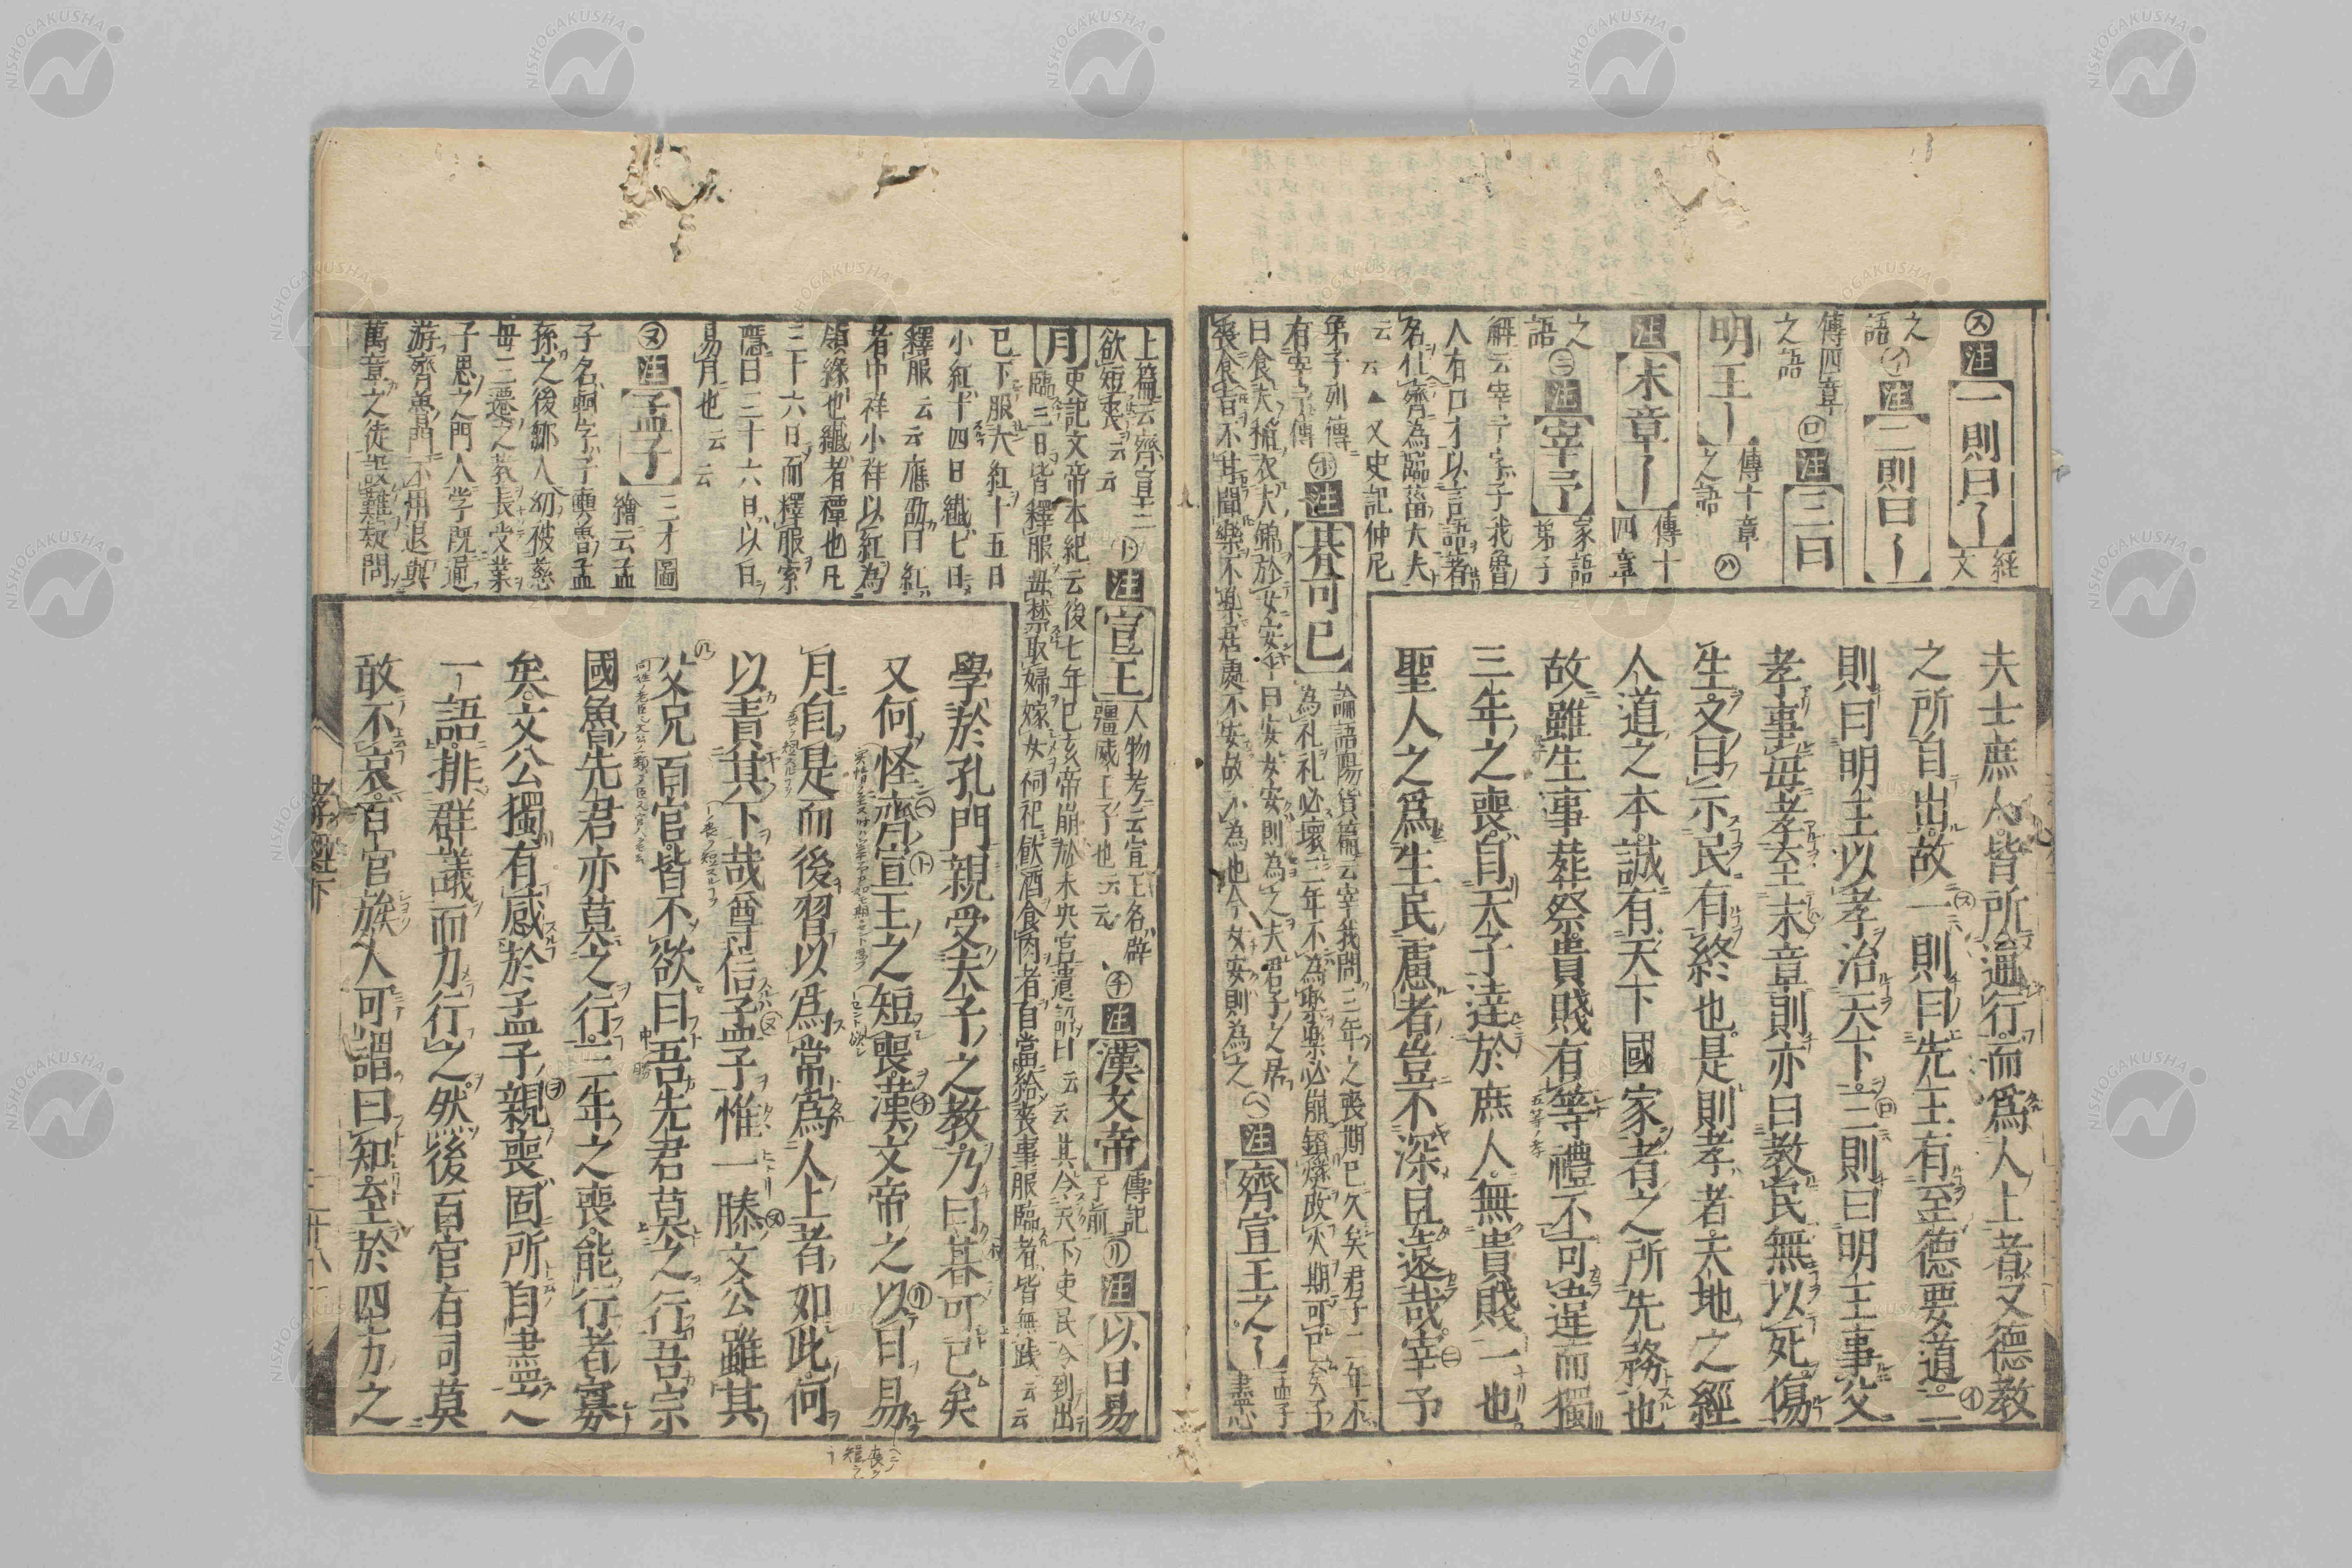 夫士庶人皆所通行而爲人上者又德教
之所自出故一則曰先王有至德要道二
則曰明王以孝治天下三則曰明王事父
孝事母孝至末章則亦曰教民無以死傷
生文曰示民有終也是則孝者天地之經
人道之本誠有天下國家者之所先務也
故雖生事葬祭貴賤有等禮不可違而獨
三年之喪自天子達於庶人無貴賤一也
聖人之爲生民慮者豈不深且遠哉宰予
㋜注一則曰〡 経文
之語㋑注二則曰〡
傳四章之語㋺注三曰
明王〡 傳十章之語㋩
注末章〡 傳十四章
之語㋥注宰予 家語弟子
解云宰予字子我魯
人有口才以言語著
名仕齊為臨菑大夫
云云▲又史記仲尼
弟子列傳有宰予傳㋭注朞可已 論語陽貨篇云宰我問三年之喪期已久矣君子三年不
為礼礼必壞三年不為樂樂必崩鑽燧改火期可已矣子
曰食夫稲衣夫錦於女安乎曰安女安則為之夫君子之居
喪食旨不甘聞樂不樂居處不安故不為也今女安則為之㋬注齊宣王之〡 孟子盡心
上篇云齊宣王欲短喪云云㋣注宣王 人物考云宣王名辟疆威王子也云云㋠注漢文帝 傳記于前㋷注以日易
月 史記文帝本紀云後七年已亥帝崩於未央宮遺詔曰云云其令天下吏民令到出
臨三日皆釋服毋禁取婦嫁女祠祀飲酒食肉者自當給喪事服臨者皆無踐云云
已下服大紅十五日
小紅十四日纖七日
釋服云云應劭曰紅
者中祥小祥以紅為
領緣也纖者禫也凡
三十六日而釋服索
隱曰三十六日以日
易月也云云
㋦注孟子 三才圖繪云孟
子名軻字子輿魯孟
孫之後鄒人幼被慈
母三遷之教長受業
子思之門人学既通
游齊魯間不用退與
萬章之徒設難疑問
學於孔門親受夫子之教乃曰朞可已矣
又何怪齊宣王之短喪漢文帝之以日易
月自是而後習以爲常爲人上者如此何
以責其下哉尊信孟子惟一滕文公雖其
父兄百官皆不欲曰吾先君莫之行吾宗
國魯先君亦莫之行三年之喪能行者寡
矣文公獨有感於孟子親喪固所自盡之
一語排群議而力行之然後百官有司莫
敢不哀百官族人可謂曰知至於四方之
孝經下
二十八